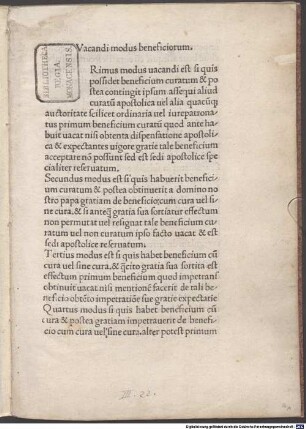 BIBLIOTHEKA
REGIA
MONACENSIS.
Vacandi modus beneficiorum.
Rimus modus uacandi est si quis
possidet beneficium curatum & po
stea contingit ipsum assequi aliud
curatū apostolica uel alia quacūqȝ
auctoritate scilicet ordinaria uel iurepatrona
tus primum beneficium curatū quod ante ha
buit uacat nisi obtenta dispensatione apostoli
ca & expectantes uigore gratie tale beneficium
acceptare nō possunt sed est sedi apostolice spe
cialiter reseruatum.
Secundus modus est si quis habuerit benefici
um curatum & postea obtinuerit a domino no
stro papa gratiam de beneficio cum cura uel si
ne cura, & si anteqȝ gratia sua sortiatur effectum
non permutat uel resignat tale beneficium cu
ratum uel non curatum ipso facto uacat & est
sedi apostolice reseruatum.
Tertius modus est si quis habet beneficium cū
cura uel sine cura, & qȝcito gratia sua sortita est
effectum primum beneficium quod impetrans
obtinuit uacat nisi mentionē facerit de tali be
neficio obtēto impetratiōe sue gratie expectatiē
Quartus modus si quis habet beneficium cū
cura & postea gratiam impetrauerit de benefi
cio cum cura uel sine cura, alter potest primum